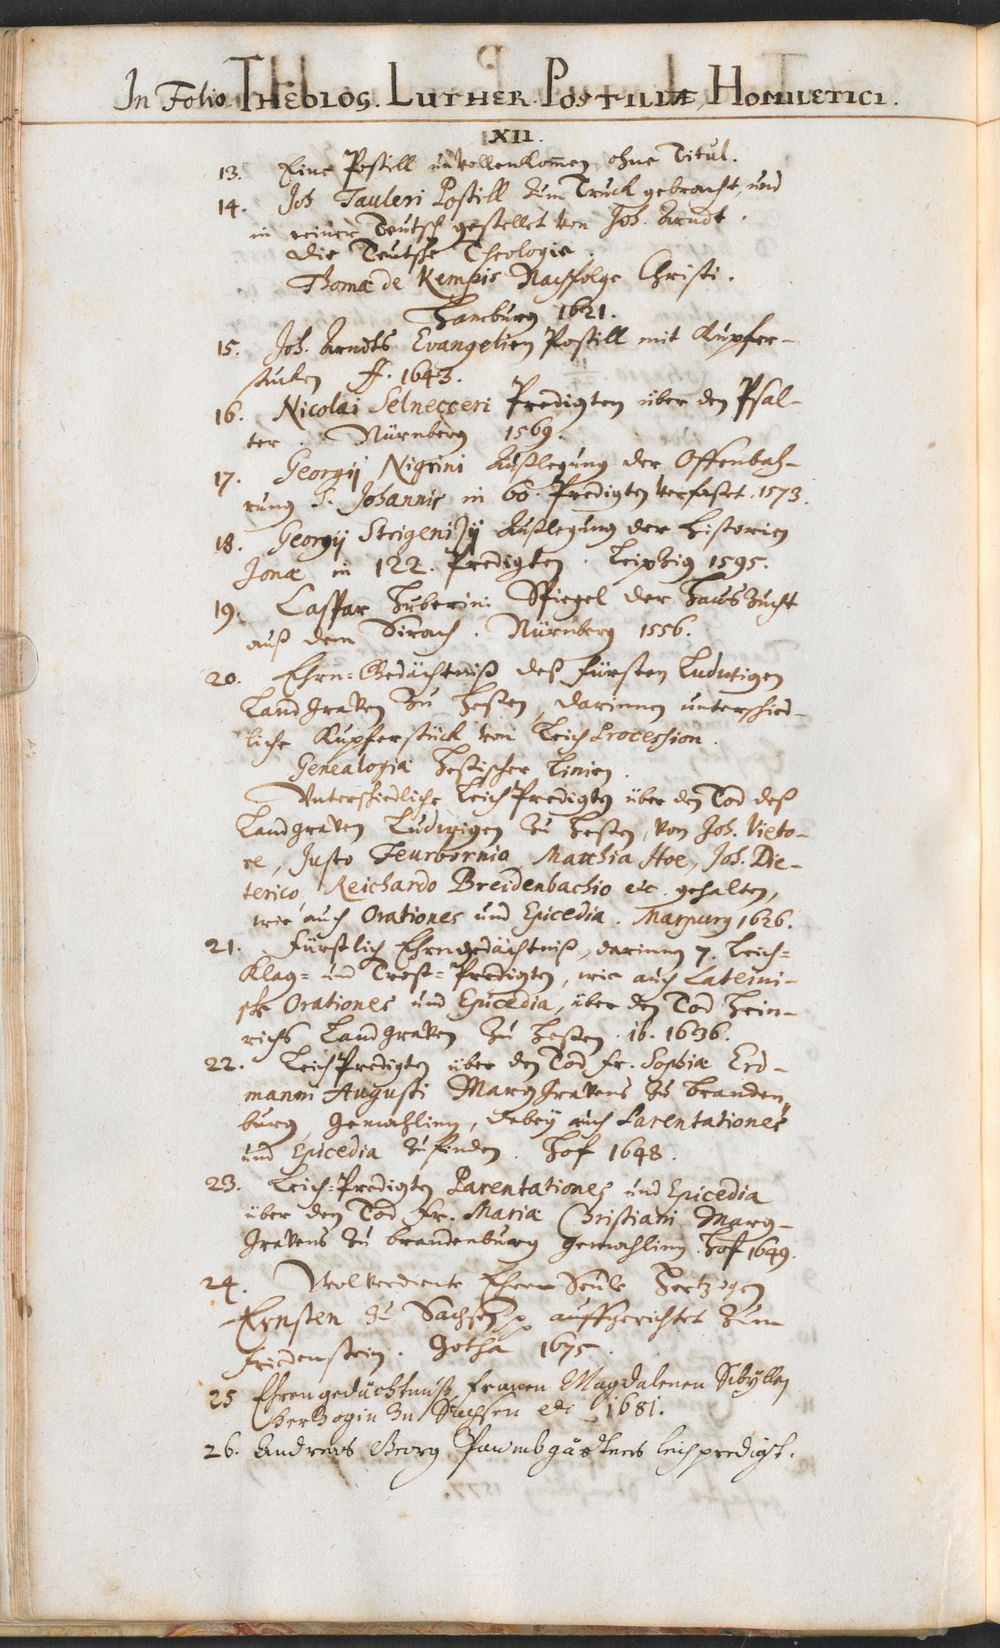 In Folio. THEOLOG. LUTHER. POSTILLÆ, HOMILETICI.
XII.
13. Eine Postill unvollenkom̃en, ohne Titul.
14. Joh Tauleri Postill zum Truck gebracht, und
in reiner Teutsch gestellet von Joh. Arndt.
Die Teutsche Theologie.
Thomæ de Kempis Nachfolge Christi.
Hamburg 1621.
15. Joh. Arndts Evangelien Postill mit Kupfer-
stucken f. 1643.
16. Nicolai Selnecceri Predigten über den Psal-
ter. Nürnberg 1569.
17. Georgij Nigrini Außlegung der Offenbah-
rung S. Johannis in 60. Predigten verfaßet. 1573.
18. Georgij Strigenitzij Außlegung der Historien
Jonæ in 122. Predigten. Leipzig 1595.
19. Caspar Huberini Spiegel der Hauszucht
auß dem Sirach. Nürnberg 1556.
20. Ehrn-Gedächtniß deß Fürsten Ludwigen
Landgraven zu Heßen, darinnen unterschied-
liche Kupferstück von Leich Procession.
Genealogia Heßischer Linien.
Unterschiedliche Leich Predigten über den Tod deß
Landgraven Ludwigen zu Heßen, von Joh. Vieto-
re, Justo Feurbornio, Matthia Hoe, Joh. Die-
terico, Reichardo Breidenbachio etc. gehalten,
wie auch Orationes und Epicedia. Marpurg 1626.
21. Fürstlich Ehrngedächtniß, darinnen 7. Leich-
Klag- und Trost-Predigten, wie auch Lateini-
sche Orationes und Epicedia, über den Tod Hein-
richs Landgraven zu Heßen. ib. 1636.
22. Leich Predigten über den Tod Fr. Sophiæ Erd-
manni Augusti Marggravens zu Branden-
burg, Gemahlin, dabey auch Parentationes
und Epicedia zufinden. Hof 1648.
23. Leich-Predigten Parentationes und Epicedia
über den Tod Fr. Mariæ Christiani Marg-
gravens zu Brandenburg Gemahlin. Hof 1649.
24. Wolverdiente Ehren Seule Hertzogen
Ernsten zu Sachsen auffgerichtet zum
Friedenstein. Gotha 1675.
25 Ehrengedächtnüß Frauen Magdalenen Sibyllen
Hertzogin zu Sachsen etc 1681.
26. Andreas Georg Paumbgärtners leichpredigt.